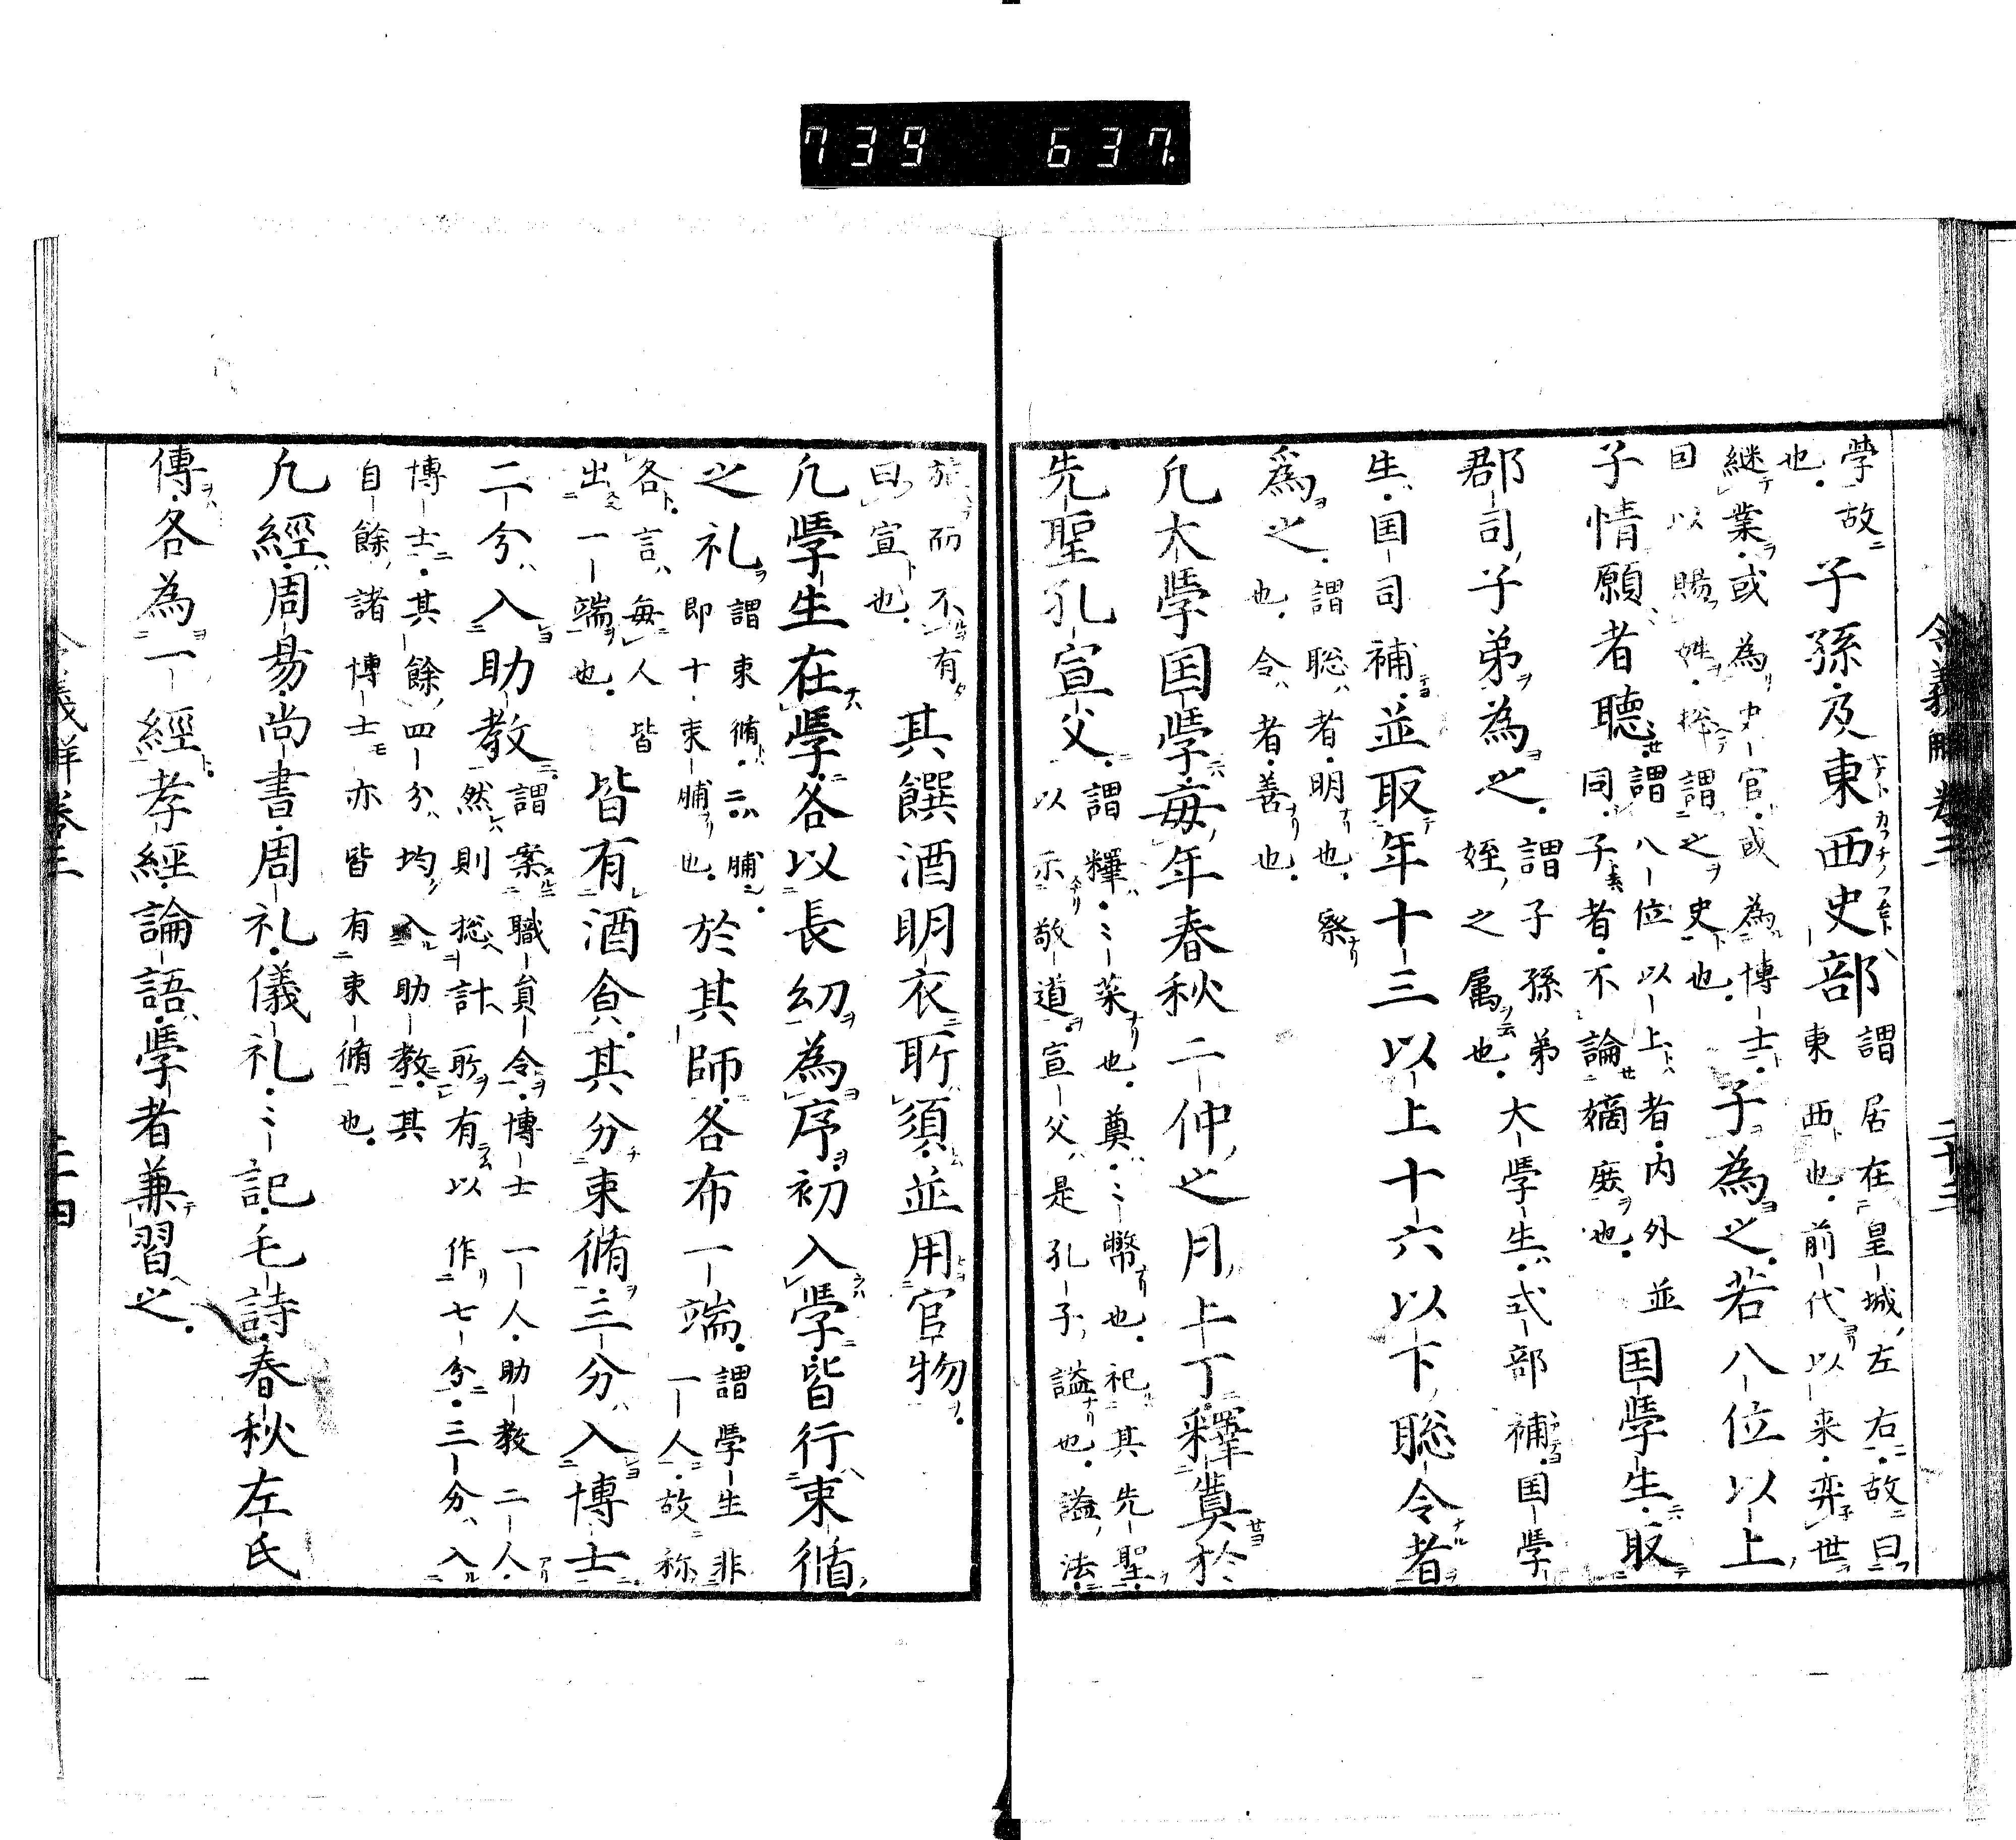 739 637
令義解卷三 二十三
學故
也
子孫及東西史部
謂居在皇城左右故曰
東西也前代以来奕世
継業或為史官或為博士
因以賜姓総謂之史也
子為之若八位以上
子情願者聽
謂八位以上者内外並
同子者不論嫡庶也
国學生取
郡司子弟為之
謂子孫弟
姪之属也
大學生式部補国學
生国司補並取年十三以上十六以下聡令者
為之
謂聡者明也察
也令者善也
凡大學国學毎年春秋二仲之月上丁釋奠於
先聖孔宣父
謂釋〻菜也奠〻幣也祀其先聖
以示敬道宣父是孔子謚也謚法
施而不有
曰宣也
其饌酒明衣所須並用官物
凡學生在學各以長幼為序初入學皆行束脩
之礼
謂束脩二脯
即十束脯也
於其師各布一端
謂學生非
一人故称
各言毎人皆
出一端也
皆有酒食其分束脩三分入博士
二分入助教
謂案職員令博士一人助教二人
然則総計所有以作七分三分入
博士其餘四分均入助教其
自餘諸博士亦皆有束脩也
凡經周易尚書周礼儀礼〻記毛詩春秋左氏
傳各為一經孝經論語學者兼習之
卷三